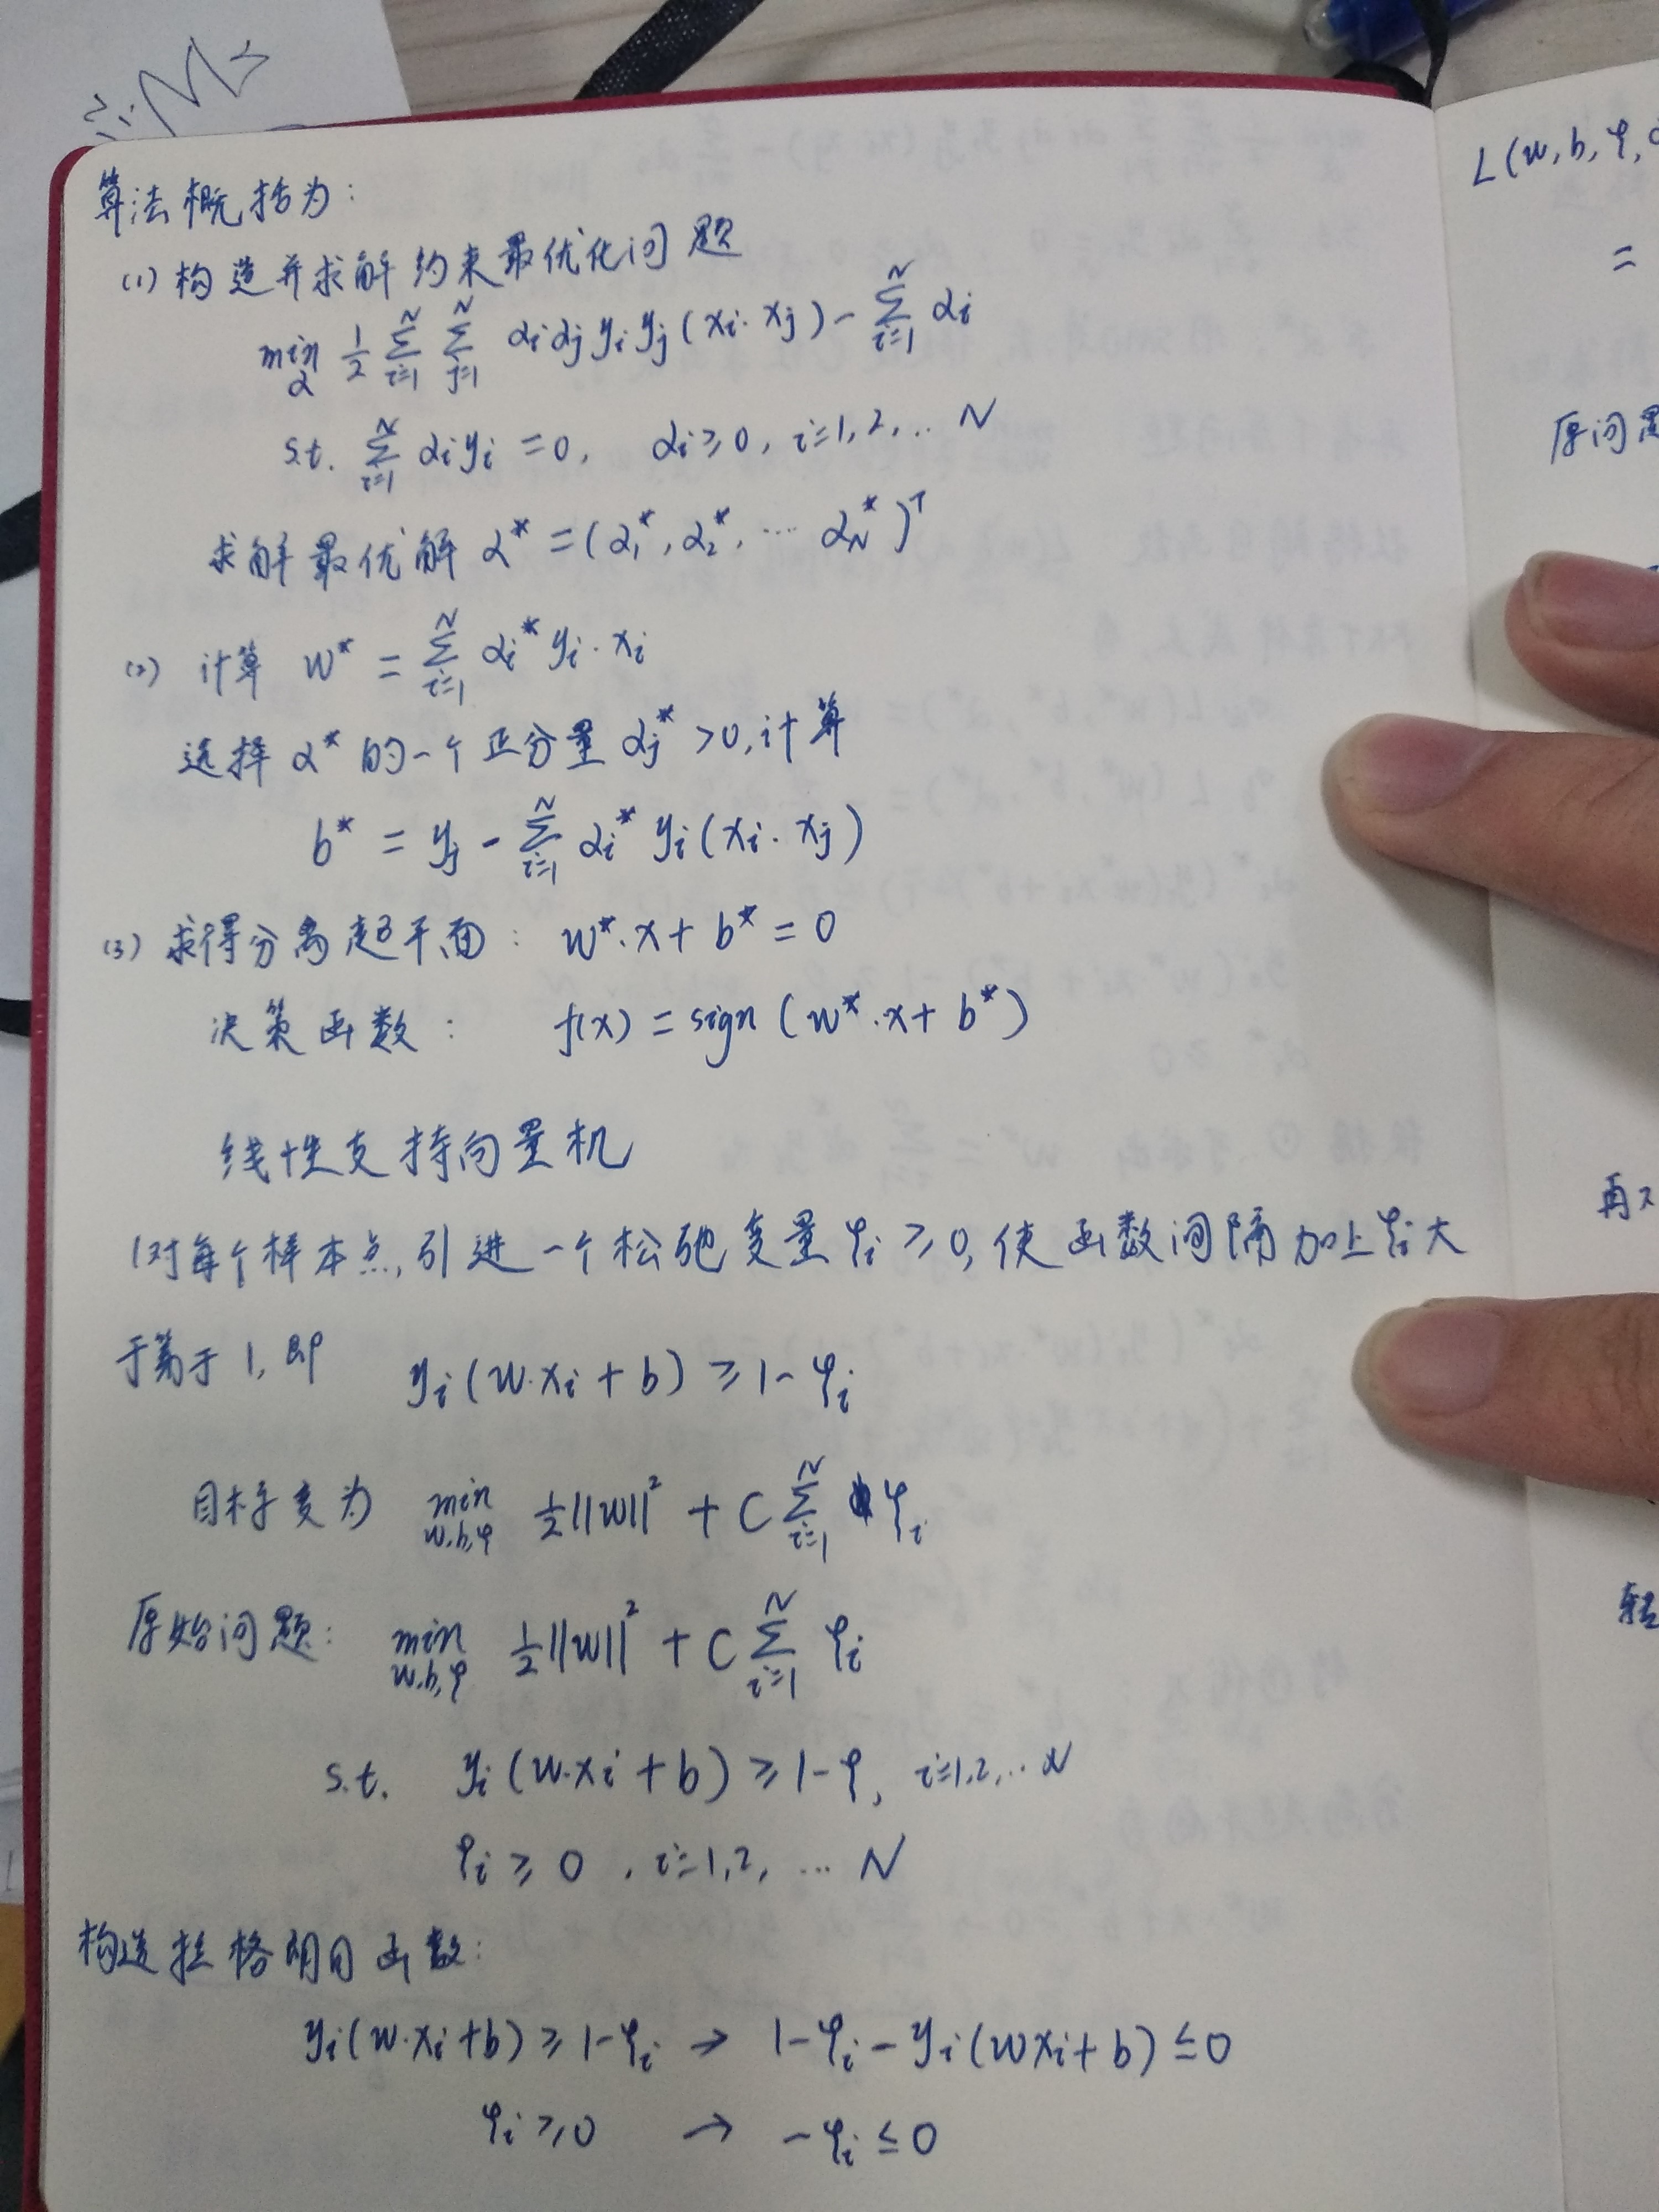 算法概括为:
(1) 构造并求解约束最优化问题
min α 1/2 Σ_{i=1}^{N} Σ_{j=1}^{N} αi αj yi yj (xi·xj) - Σ_{i=1}^{N} αi
s.t. Σ_{i=1}^{N} αi yi = 0, αi ≥ 0, i=1,2,… N
求解最优解 α* = (α1*, α2*, … αN*)^T
(2) 计算 w* = Σ_{i=1}^{N} αi* yi·xi
选择 α* 的一个正分量 αj* >0, 计算
b* = yj - Σ_{i=1}^{N} αi* yi (xi·xj)
(3) 求得分离超平面: w*·x + b* = 0
决策函数: f(x) = sign (w*·x + b*)
线性支持向量机
1对每个样本点,引进一个松弛变量 φi ≥ 0, 使函数间隔加上φi大
于等于1, 即 yi (w·xi + b) ≥ 1-φi
目标变为 min w,b,φ 1/2||w||² + C Σ_{i=1}^{N} φi
原始问题: min w,b,φ 1/2||w||² + C Σ_{i=1}^{N} φi
s.t. yi (w·xi + b) ≥ 1-φ, i=1,2,… N
φi ≥ 0, i=1,2, … N
构造拉格朗日函数:
yi(w·xi+b) ≥ 1-φi → 1-φi-yi(wxi+b) ≤ 0
φi ≥ 0 → -φi ≤ 0
L(w,b,φ,
=
原问
再